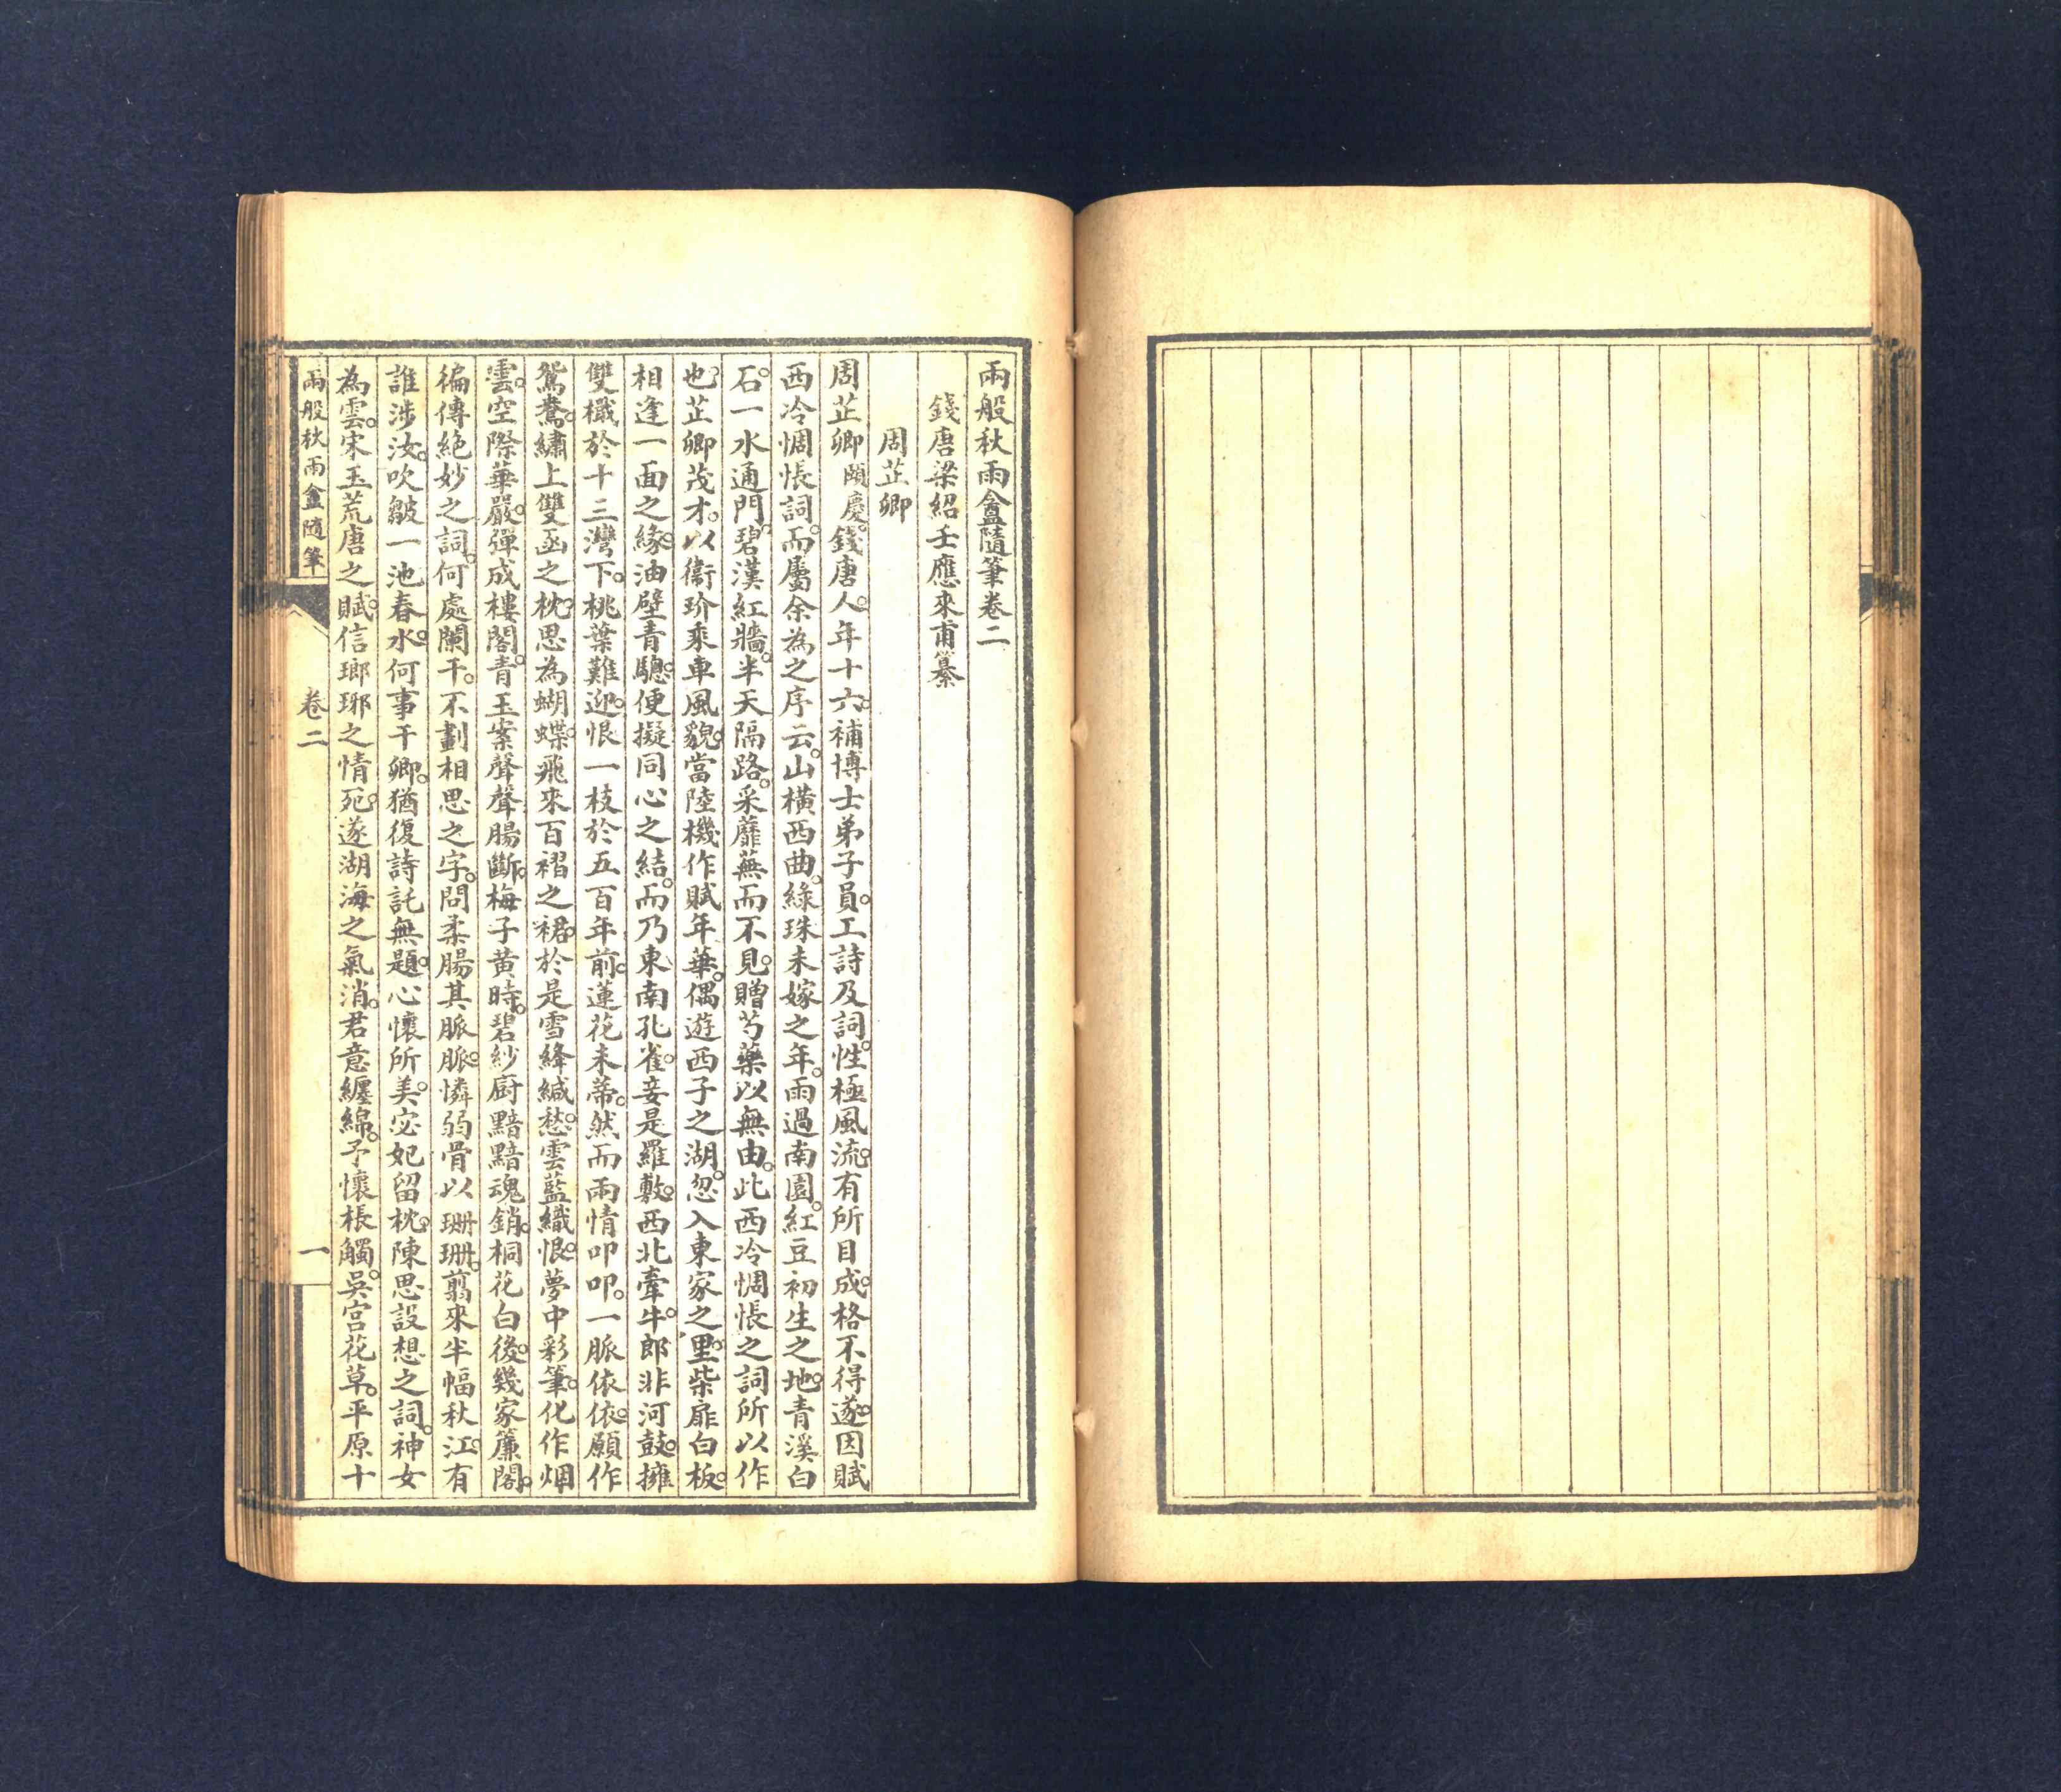 兩般秋雨盦隨筆卷二
錢唐梁紹壬應來甫纂
周芷卿
周芷卿頤慶。錢唐人。年十六。補博士弟子員。工詩及詞。性極風流。有所目成。格不得遂。因賦
西泠惆悵詞。而屬余為之序云。山橫西曲。綠珠未嫁之年。雨過南園。紅豆初生之地。青溪白
石。一水通門。碧漢紅牆。半天隔路。采蘼蕪而不見。贈芍藥以無由。此西泠惆悵之詞所以作
也。芷卿茂才。以衞玠乘車風貌。當陸機作賦年華。偶遊西子之湖。忽入東家之里。柴扉白板。
相逢一面之緣。油壁青驄。便擬同心之結。而乃東南孔雀。妾是羅敷。西北牽牛。郎非河鼓。擁
雙檝於十三灣下。桃葉難迎。恨一枝於五百年前。蓮花未蒂。然而兩情叩叩。一脈依依。願作
鴛鴦。繡上雙函之枕。思為蝴蝶。飛來百褶之裙。於是雪絳緘愁。雲藍織恨。夢中彩筆。化作烟
雲。空際華嚴。彈成樓閣。青玉案聲聲腸斷。梅子黃時。碧紗厨黯黯魂銷。桐花白後。幾家簾閣。
徧傳絕妙之詞。何處闌干。不劃相思之字。問柔腸其脈脈。憐弱骨以珊珊。翦來半幅秋江。有
誰涉汝。吹皺一池春水。何事干卿。猶復詩託無題。心懷所美。宓妃留枕。陳思設想之詞。神女
為雲。宋玉荒唐之賦。信瑯琊之情死。遂湖海之氣消。君意纏綿。予懷棖觸。吳宮花草。平原十
兩般秋雨盦隨筆
卷二
一